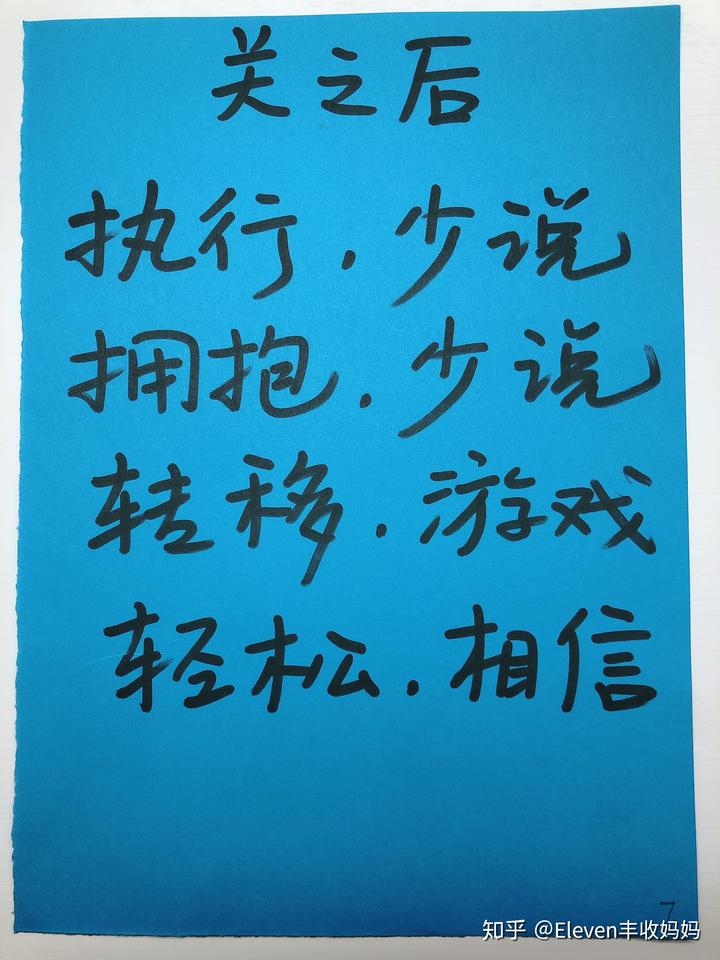 关之后
执行.少说
拥抱.少说
转移.游戏
轻松.相信
7
知乎 @Eleven丰收妈妈